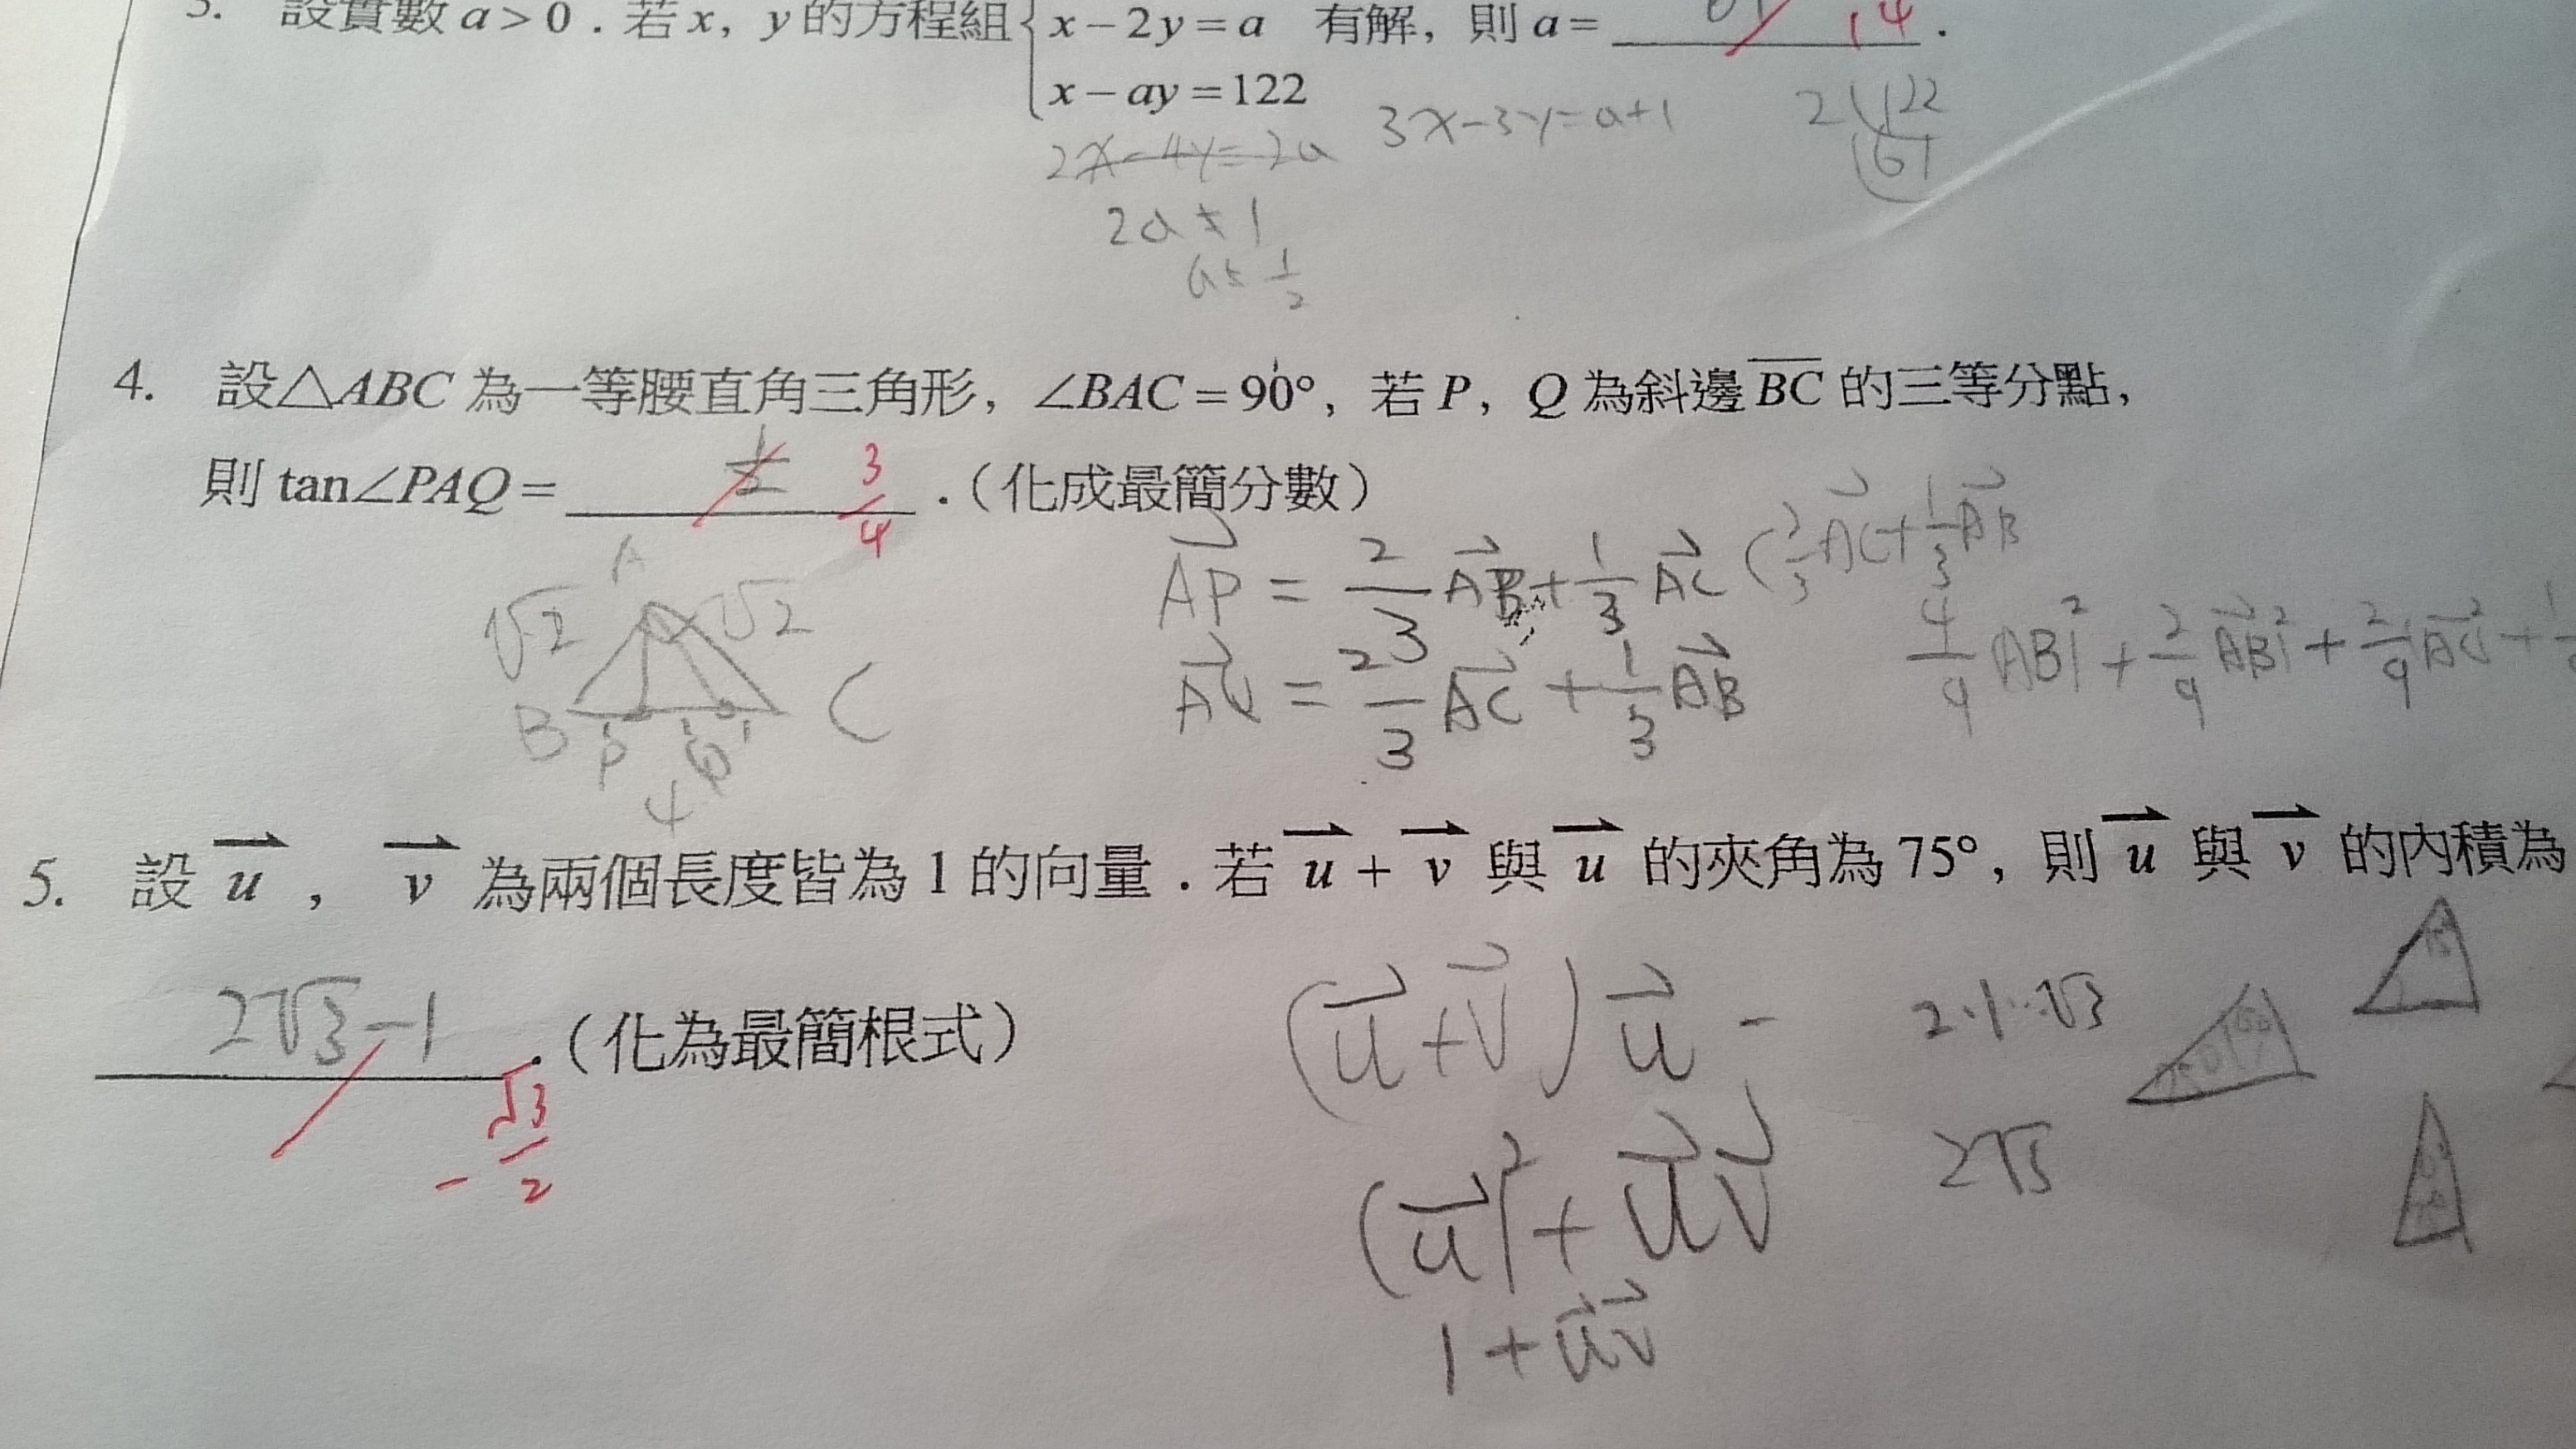 3. 設實數 a > 0 . 若 x, y 的方程組 { x − 2y = a 有解, 則 a = 14 .
x − ay = 122
2x − 4y = 2a 3x − 3y = a + 1 2 122
61
2a ≠ 1
a ≠ 1/2
4. 設△ABC 為一等腰直角三角形, ∠BAC = 90°, 若 P, Q 為斜邊 BC 的三等分點,
則 tan∠PAQ = 1/2 3/4 . (化成最簡分數)
A
√2 √2
B C
P Q 1
4
AP = 2/3 AB + 1/3 AC (2/3 AC + 1/3 AB
AQ = 2/3 AC + 1/3 AB
4/9 AB|² + 2/9 AB|² + 2/9 AC² +
5. 設 u , v 為兩個長度皆為 1 的向量 . 若 u + v 與 u 的夾角為 75°, 則 u 與 v 的內積為
2√3 − 1 . (化為最簡根式)
− √3/2
(u + v) u − 2·1·√3
|u|² + u v 2√3
1 + u v